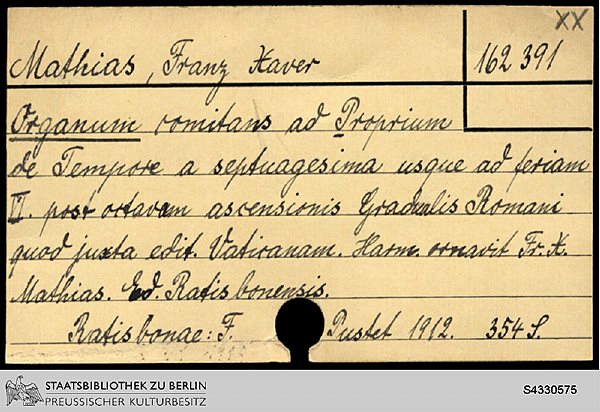 XX
Mathias, Franz Xaver
162 391
Organum comitans ad Proprium
de Tempore a septuagesima usque ad feriam
II. post octavam ascensionis Gradualis Romani
quod juxta edit. Vaticanam. Harm. ornavit Fr. X.
Mathias. Ed. Ratisbonensis.
Ratisbonae: F. Pustet 1912. 354 S.
STAATSBIBLIOTHEK ZU BERLIN
PREUSSISCHER KULTURBESITZ
S4330575